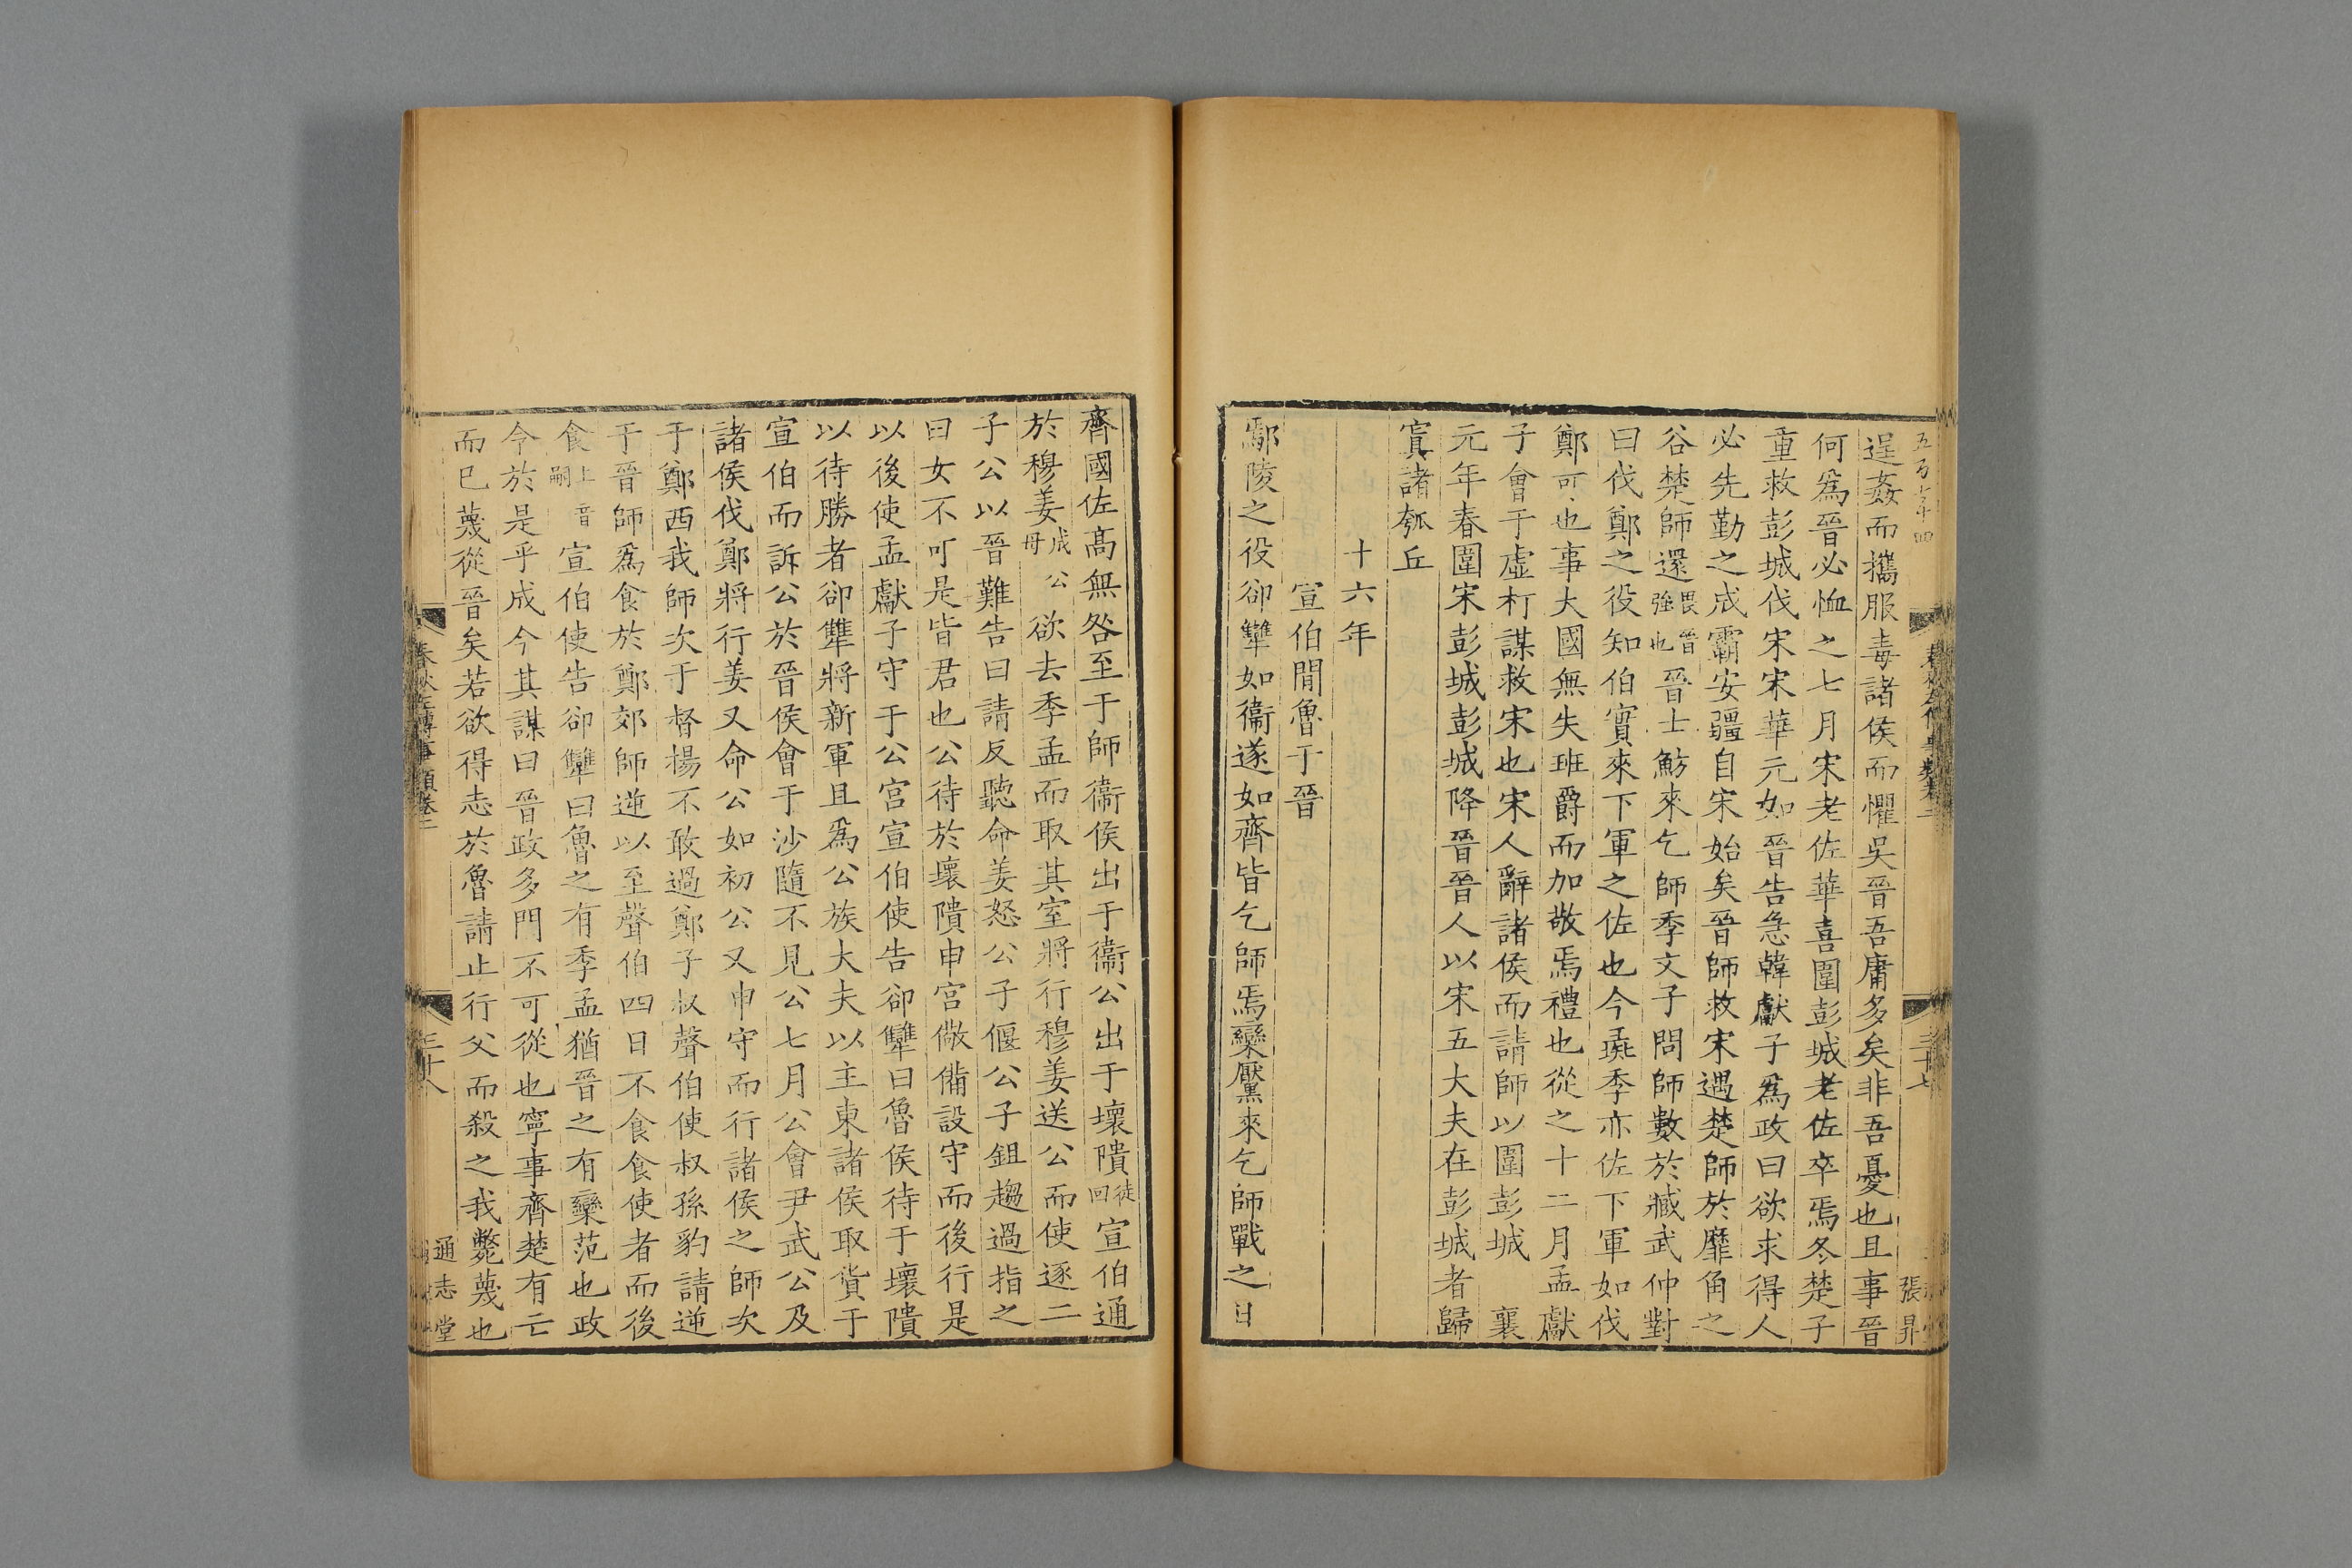 逞姦而攜服毒諸侯而懼吳晉吾庸多矣非吾憂也且事晉
何爲晉必恤之七月宋老佐華喜圍彭城老佐卒焉冬楚子
重救彭城伐宋宋華元如晉告急韓獻子爲政曰欲求得人
必先勤之成霸安疆自宋始矣晉師救宋遇楚師於靡角之
谷楚師還畏晉強也晉士魴來乞師季文子問師數於臧武仲對
曰伐鄭之役知伯實來下軍之佐也今彘季亦佐下軍如伐
鄭可也事大國無失班爵而加敬焉禮也從之十二月孟獻
子會于虛朾謀救宋也宋人辭諸侯而請師以圍彭城　襄
元年春圍宋彭城彭城降晉晉人以宋五大夫在彭城者歸
寘諸瓠丘
十六年
宣伯閒魯于晉
鄢陵之役郤犨如衞遂如齊皆乞師焉欒黶來乞師戰之日
張昇
齊國佐高無咎至于師衞侯出于衞公出于壞隤徒回宣伯通
於穆姜成公母欲去季孟而取其室將行穆姜送公而使逐二
子公以晉難告曰請反聽命姜怒公子偃公子鉏趨過指之
曰女不可是皆君也公待於壞隤申宮儆備設守而後行是
以後使孟獻子守于公宮宣伯使告郤犨曰魯侯待于壞隤
以待勝者郤犨將新軍且爲公族大夫以主東諸侯取貨于
宣伯而訴公於晉侯會于沙隨不見公七月公會尹武公及
諸侯伐鄭將行姜又命公如初公又申守而行諸侯之師次
于鄭西我師次于督揚不敢過鄭子叔聲伯使叔孫豹請逆
于晉師爲食於鄭郊師逆以至聲伯四日不食食使者而後
食上音嗣宣伯使告郤犨曰魯之有季孟猶晉之有欒范也政
令於是乎成今其謀曰晉政多門不可從也寧事齊楚有亡
而已蔑從晉矣若欲得志於魯請止行父而殺之我斃蔑也
春秋左傳事類卷二
三十八
通志堂